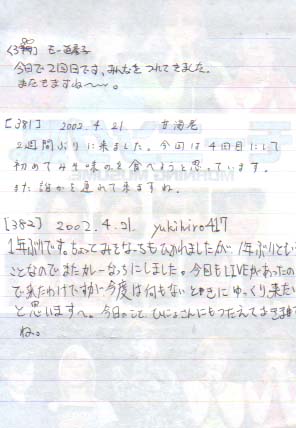 今日で2回目です。みんなをつれてきました。
またきますね〜〜。
[381] 2002.4.21
2週間ぶりに来ました。今回は4回目にして
初めてみそ味のを食べようと思っています。
また誰かを連れて来ますね。
[382] 2002.4.21. yukihiro417
1年ぶりです。ちょっとみそなっちもひかれましたが、1年ぶりという
ことなのでまたカレーなっちにしました。今回もLIVEがあったの
で来たわけですが今度は何もないときにゆっくり来たい
と思います。今日のこと、ひじょさんにもつたえておきます
ね。
MORNING MUSUME